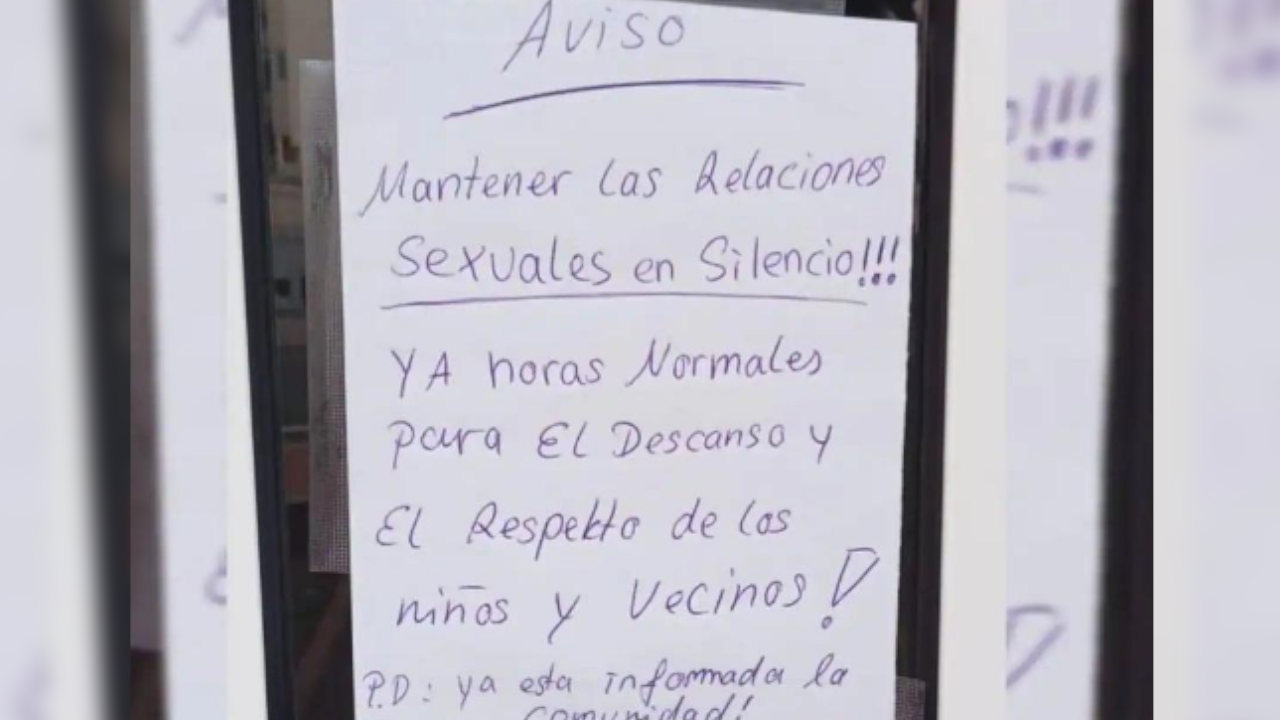 Aviso
Mantener las Relaciones
Sexuales en Silencio!!!
YA horas Normales
para El Descanso y
El Respekto de los
niños y Vecinos!
P.D: ya esta informada la
comunidad!